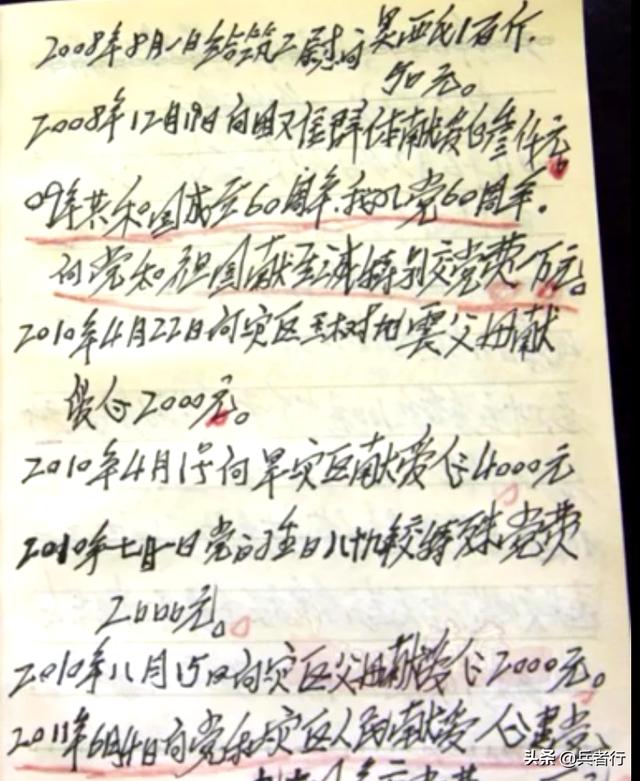 2008年8月1日给筑工慰问 百斤.
50元。
2008年12月19日向困 群体献爱心叁仟元。
09年共和国成立60周年.我入党60周年.
向党和祖国献至诚特别交党费一万元。
2010年4月22日向灾区玉树地震父母献
爱心2000元。
2010年4月1号向旱灾区献爱心4000元
2010年七月一日党的生日 较特殊党费
2000元。
2010年八月15日向灾区父母献爱心2000元。
2011年6月4日向党和灾区人民献爱心
头条 @兵者行